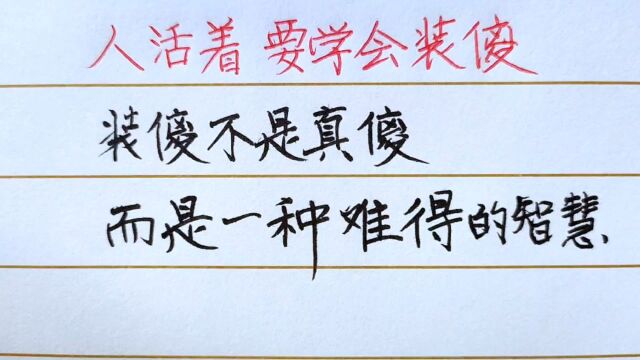 人活着 要学会装傻
装傻不是真傻
而是一种难得的智慧